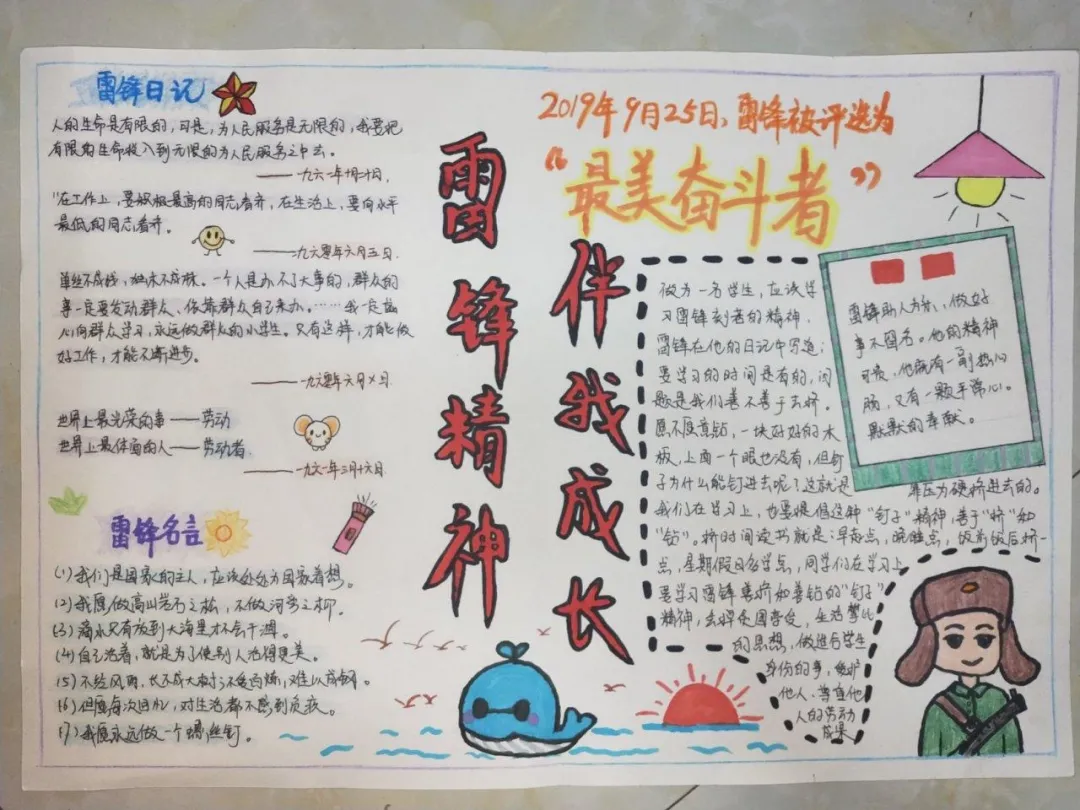 雷锋日记
人的生命是有限的，可是，为人民服务是无限的，我要把
有限的生命投入到无限的为人民服务之中去。
——一九六一年十月十日。
"在工作上，要向积极性最高的同志看齐，在生活上，要向水平
最低的同志看齐。
——一九六零年六月五日.
单丝不成线，独木不成林。一个人是办不了大事的，群众的
事一定要发动群众、依靠群众自己来办。……我一定虚
心向群众学习，永远做群众的小学生。只有这样，才能做
好工作，才能不断进步。
——一九六零年六月×日.
世界上最光荣的事——劳动
世界上最体面的人——劳动者.
——一九六一年三月十六日.
雷锋名言
(1)我们是国家的主人，应该处处为国家着想。
(2)我愿做高山岩石之松，不做河岸之柳.
(3)滴水只有放到大海里才不会干涸。
(4)自己活着，就是为了使别人活得更美。
(5)不经风雨，长不成大树；不受百炼，难以成钢。
(6)但愿每次回忆，对生活都不感到负疚。
(7)我愿永远做一个螺丝钉。
雷锋精神
伴我成长
2019年9月25日，雷锋被评选为
"最美奋斗者"
做为一名学生，应该学
习雷锋刻苦的精神.
雷锋在他的日记中写道：
要学习的时间是有的，问
题是我们善不善于去挤.
愿不愿意钻，一块好好的木
板，上面一个眼也没有，但钉
子为什么能钉进去呢？这就是
靠压力硬挤进去的。
我们在学习上，也要提倡这种"钉子"精神，善于"挤"和
"钻"。挤时间读书就是：早起点，晚睡点，饭前饭后挤一
点，星期假日多学点，同学们在学习上
要学习雷锋善挤和善钻的"钉子"
精神，去掉贪图享受，生活攀比
的思想，做适合学生
身份的事，爱护
他人、尊重他
人的劳动
成果
雷锋助人为乐，做好
事不图名。他的精神
可贵，他既有一副热心
肠，又有一颗平常心。
默默的奉献。